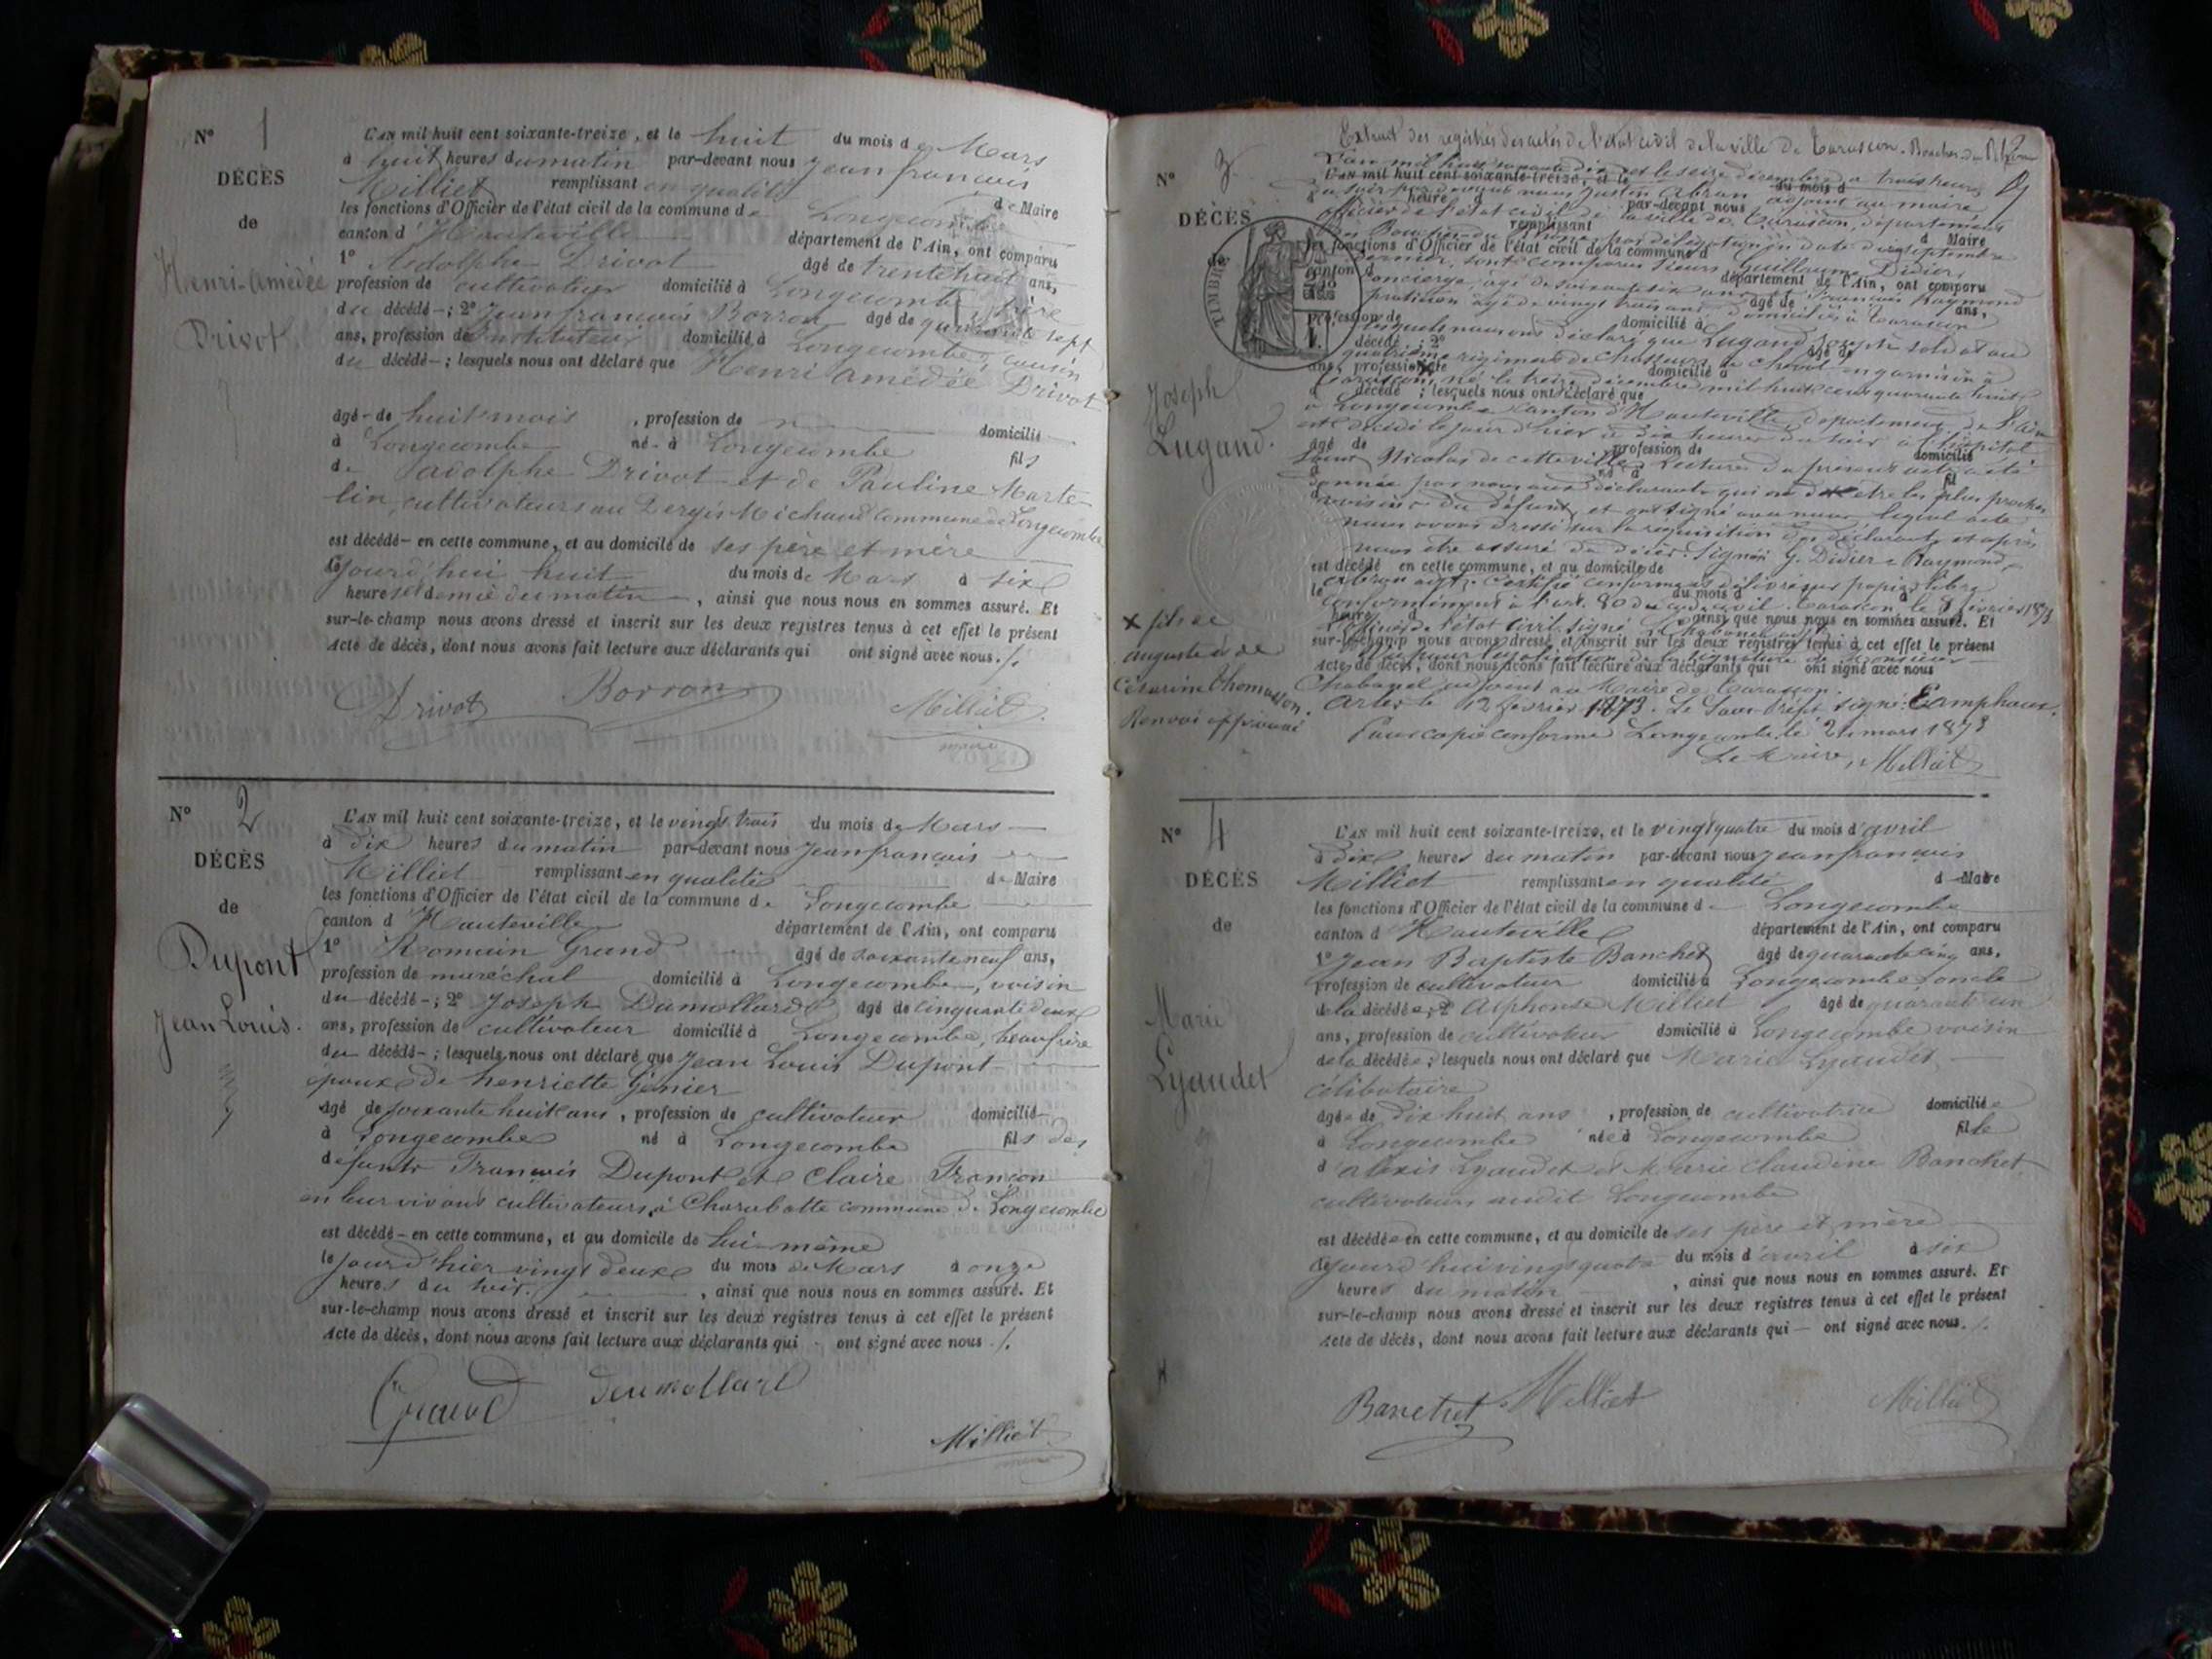 N° 1
DÉCÈS
de
Henri-Amédée
Drivot
L'AN mil huit cent soixante-treize, et le huit du mois de Mars
à huit heures du matin par-devant nous Jean françois
Milliet remplissant en qualité de Maire
les fonctions d'Officier de l'état civil de la commune de Longecombe
canton d'Hauteville département de l'Ain, ont comparu
1° Adolphe Drivot âgé de trente huit ans,
profession de cultivateur domicilié à Longecombe, père
du décédé ; 2° Jean françois Borron âgé de quarante sept
ans, profession de Instituteur domicilié à Longecombe, cousin
du décédé ; lesquels nous ont déclaré que Henri Amédée Drivot
âgé de huit mois, profession de domicilié
à Longecombe né à Longecombe fils
de adolphe Drivot et de Pauline Marte
lin, cultivateurs au Michaud commune de Longecombe
est décédé en cette commune, et au domicile de ses père et mère
jourd'hui huit du mois de Mars à six
heures et demie du matin, ainsi que nous nous en sommes assuré. Et
sur-le-champ nous avons dressé et inscrit sur les deux registres tenus à cet effet le présent
Acte de décès, dont nous avons fait lecture aux déclarants qui ont signé avec nous./.
Drivot Borron Milliet
maire
N° 2
DÉCÈS
de
Dupont
Jean Louis.
L'AN mil huit cent soixante-treize, et le vingt trois du mois de Mars
à dix heures du matin par-devant nous Jean françois
Milliet remplissant en qualité de Maire
les fonctions d'Officier de l'état civil de la commune de Longecombe
canton d'Hauteville département de l'Ain, ont comparu
1° Romain Grand âgé de soixante neuf ans,
profession de maréchal domicilié à Longecombe, voisin
du décédé ; 2° Joseph Dumollard âgé de cinquante deux
ans, profession de cultivateur domicilié à Longecombe, beaufrère
du décédé ; lesquels nous ont déclaré que Jean Louis Dupont
époux de henriette Génier
âgé de soixante huit ans, profession de cultivateur domicilié
à Longecombe né à Longecombe fils des
défunts François Dupont et Claire Françon
en leur vivant cultivateurs à Charabotte commune de Longecombe
est décédé en cette commune, et au domicile de lui-même
le jour d'hier vingt deux du mois de Mars à onze
heures du soir, ainsi que nous nous en sommes assuré. Et
sur-le-champ nous avons dressé et inscrit sur les deux registres tenus à cet effet le présent
Acte de décès, dont nous avons fait lecture aux déclarants qui ont signé avec nous./.
Grand dumollard
Milliet
N° 3
DÉCÈS
de
TIMBRE
Joseph
Lugand.
Extrait des registres des actes de l'état civil de la ville de Tarascon. Bouches du Rhône
L'AN mil huit cent soixante-treize, et le du mois d
L'an mil huit soixante dix et le seize décembre à trois heures
du soir par devant nous Justin Abran adjoint au maire
heure d par-devant nous
officier de l'état civil de la ville de Tarascon, département
remplissant d Maire
des Bouches du Rhône par délégation en date du septembre
les fonctions d'Officier de l'état civil de la commune d
dernier, sont comparus sieurs Guillaume Didier,
canton d département de l'Ain, ont comparu
concierge, âgé de soixante six ans et François Raymond
âgé de ans,
praticien âgé de vingt trois ans, domiciliés à Tarascon
profession de domicilié à
lesquels nous ont déclaré que Lugand Joseph soldat au
décédé ; 2° âgé de
quatrième régiment de Chasseurs à cheval en garnison à
ans, profession de domicilié à
Tarascon, né le treize décembre mil huit cent quarante huit
décédé ; lesquels nous ont déclaré que
à Longecombe canton d'Hauteville, département de l'Ain
est décédé le jour d'hier à dix heures du soir à l'hôpital
âgé de profession de domicilié
Saint Nicolas de cette ville. Lecture du présent acte a été
né à fil
donnée par nous aux déclarants qui ont dit être les plus proches
voisins du défunt, et ont signé avec nous lequel acte
nous avons dressé sur la réquisition des déclarants et après
nous être assuré du décès. Signés G. Didier, Raymond,
est décédé en cette commune, et au domicile de
Abran adjt. Certifié conforme et délivré sur papier libre
le du mois d à
conformément à l'art. 80 du code civil. Tarascon le 8 février 1873
heure d ainsi que nous nous en sommes assuré. Et
L'officier de l'état civil signé Chabanel adjt
sur-le-champ nous avons dressé et inscrit sur les deux registres tenus à cet effet le présent
Vu pour légalisation de la signature de Monsieur
Acte de décès, dont nous avons fait lecture aux déclarants qui ont signé avec nous
Chabanel adjoint au Maire de Tarascon.
Arles le 12 février 1873. Le Sous-Préfet signé:
Pour copie conforme Longecombe le mars 1873
Le Maire, Milliet
x fils de
auguste et de
Césarine Thomasson.
Renvoi approuvé
N° 4
DÉCÈS
de
Marie
Lyaudet
L'AN mil huit cent soixante-treize, et le vingt quatre du mois d'avril
à dix heures du matin par-devant nous Jean françois
Milliet remplissant en qualité de Maire
les fonctions d'Officier de l'état civil de la commune de Longecombe
canton d'Hauteville département de l'Ain, ont comparu
1° Jean Baptiste Banchet âgé de quarante cinq ans,
profession de cultivateur domicilié à Longecombe oncle
de la décédée ; 2° Alphonse Milliet âgé de quarante un
ans, profession de cultivateur domicilié à Longecombe voisin
de la décédée ; lesquels nous ont déclaré que Marie Lyaudet
célibataire
âgée de dix huit ans, profession de cultivatrice domiciliée
à Longecombe née à Longecombe fille
d'alexis Lyaudet et Marie Claudine Banchet
cultivateurs audit Longecombe
est décédée en cette commune, et au domicile de ses père et mère
cejourd'hui vingt quatre du mois d'avril à six
heures du matin, ainsi que nous nous en sommes assuré. Et
sur-le-champ nous avons dressé et inscrit sur les deux registres tenus à cet effet le présent
Acte de décès, dont nous avons fait lecture aux déclarants qui ont signé avec nous./.
Banchet Milliet Milliet